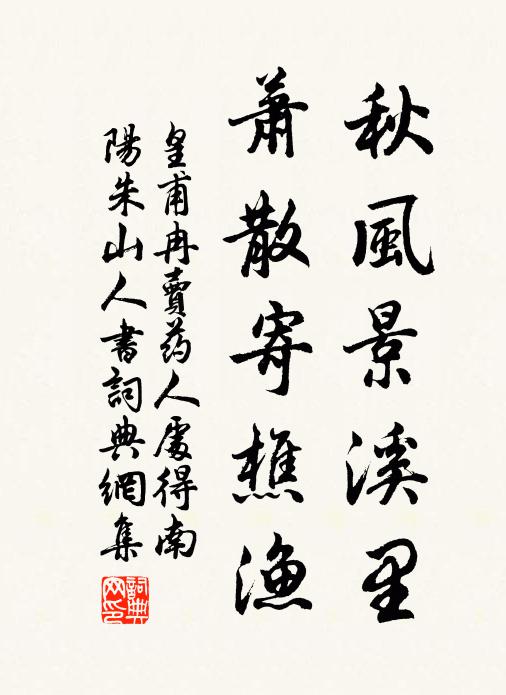 秋風景溪里
蕭散寄樵漁
皇甫冉賣药人處得南
陽朱山人書詞典網集
詞典网印